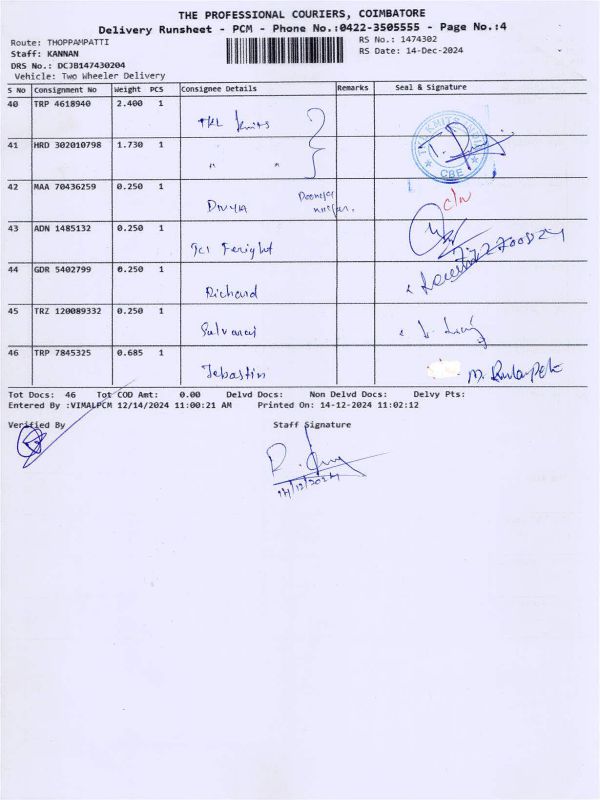 THE PROFESSIONAL COURIERS, COIMBATORE
Delivery Runsheet - PCM - Phone No.:0422-3505555 - Page No.:4
Route: THOPPAMPATTI
RS No.: 1474302
Staff: KANNAN
RS Date: 14-Dec-2024
DRS No.: DCJB147430204
Vehicle: Two Wheeler Delivery
S No Consignment No Weight PCS Consignee Details Remarks Seal & Signature
40 TRP 4618940 2.400 1 TKL Knits
41 HRD 302010798 1.730 1 " "
CBE
42 MAA 70436259 0.250 1 Divya c/n
43 ADN 1485132 0.250 1
44 GDR 5402799 0.250 1 Richard
45 TRZ 120089332 0.250 1 Selvaraj
46 TRP 7845325 0.685 1 Jebastin
Tot Docs: 46 Tot COD Amt: 0.00 Delvd Docs: Non Delvd Docs: Delvy Pts:
Entered By :VIMALPCM 12/14/2024 11:00:21 AM Printed On: 14-12-2024 11:02:12
Verified By Staff Signature
14/12/2024